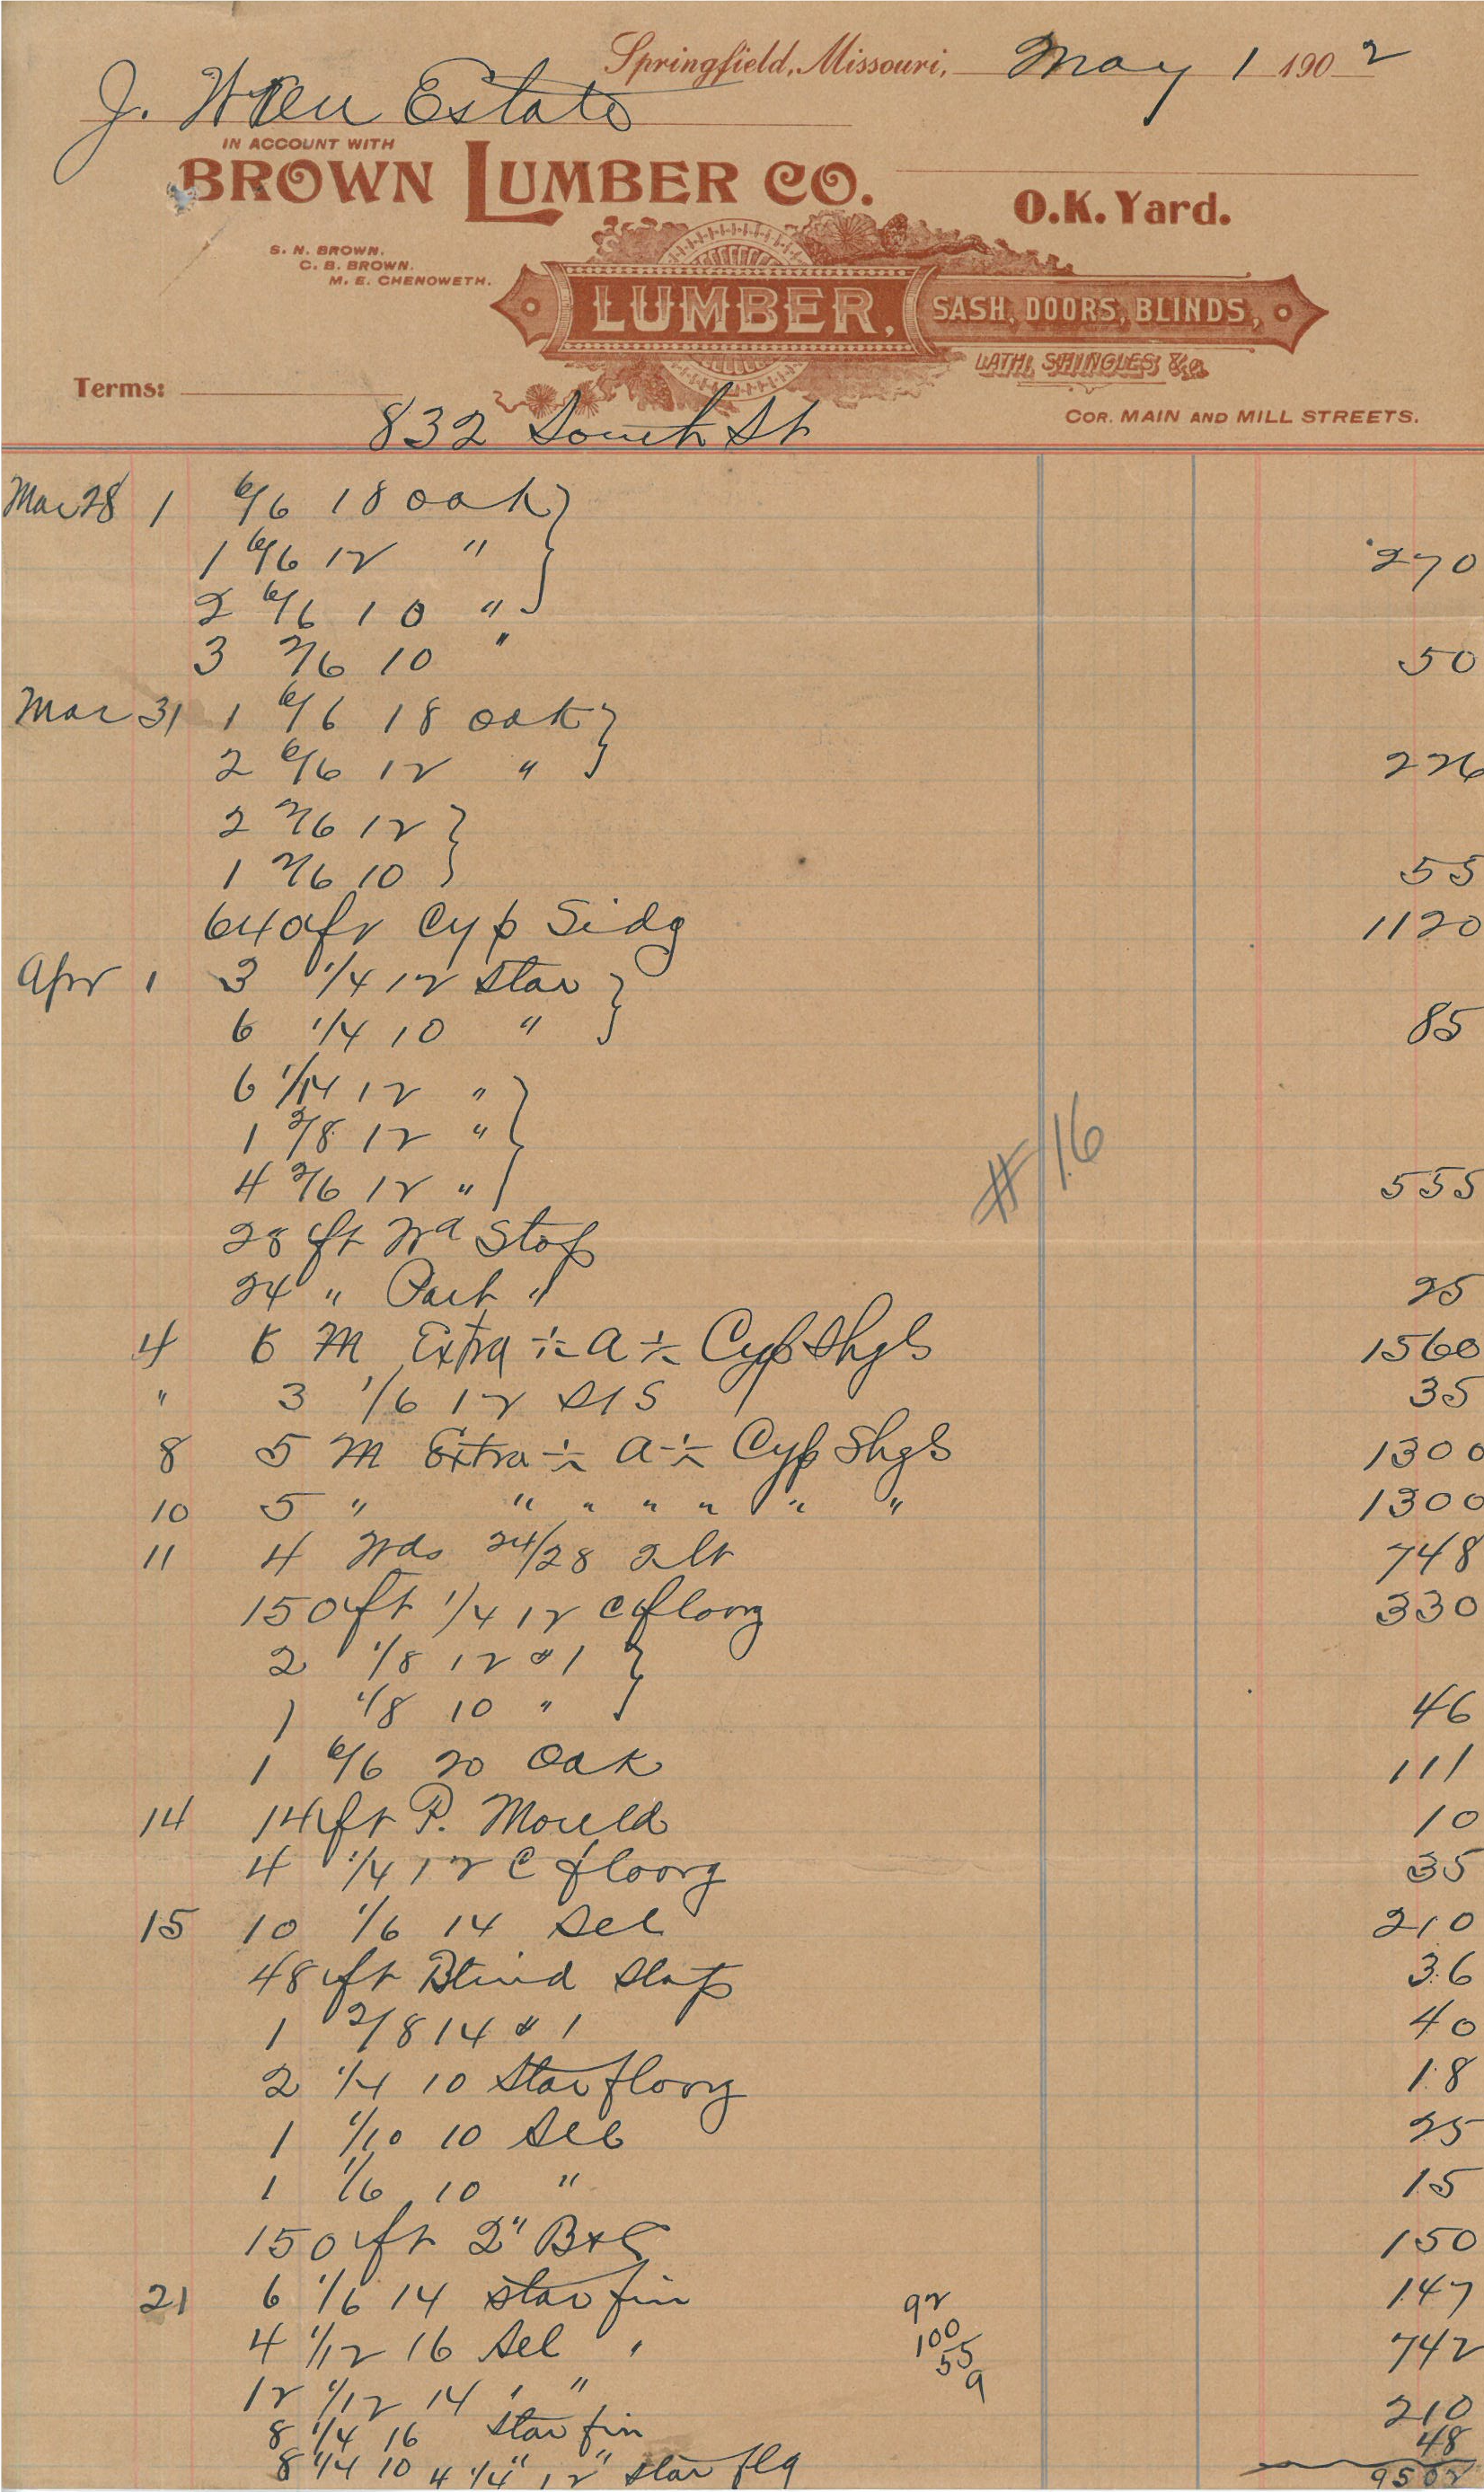 Springfield, Missouri, May 1 1902
J. Wren Estate
IN ACCOUNT WITH
BROWN LUMBER CO.
O.K. Yard.
S. N. BROWN.
C. B. BROWN.
M. E. CHENOWETH.
LUMBER, SASH, DOORS, BLINDS,
LATH, SHINGLES &c
Terms:
COR. MAIN AND MILL STREETS.
832 South St
Mar 28 1 6/6 18 oak
1 6/6 12 " 270
2 6/6 10 "
3 2/6 10 " 50
Mar 31 1 6/6 18 oak
2 6/6 12 " 226
2 2/6 12
1 2/6 10 55
640 ft Cyp Sidg 1120
Apr 1 3 1/4 12 Star
6 1/4 10 " 85
6 1/14 12 "
1 2/8 12 "
4 2/6 12 " 555
#16
28 ft Wd Stop
24 " Part " 25
4 6 M Extra ÷ a ÷ Cyp Shgls 1560
" 3 1/6 12 S1S 35
8 5 M Extra ÷ a ÷ Cyp Shgls 1300
10 5 " " " " " " " 1300
11 4 Wds 24/28 2lt 748
150 ft 1/4 12 C floorg 330
2 1/8 12 #1
1 1/8 10 " 46
1 6/6 20 Oak 111
14 14 ft P. Mould 10
4 1/4 12 C floorg 35
15 10 1/6 14 Sel 210
48 ft Blind Stop 36
1 2/8 14 #1 40
2 1/4 10 Star floorg 18
1 1/10 10 Sel 25
1 1/6 10 " 15
150 ft 2" B+C 150
21 6 1/6 14 Star fin 147
92
100
55
9
4 1/12 16 Sel " 742
12 1/12 14 " "
8 1/4 16 Star fin 210
8 1/4 10 4 1/4" 12" Star flg 48
9502